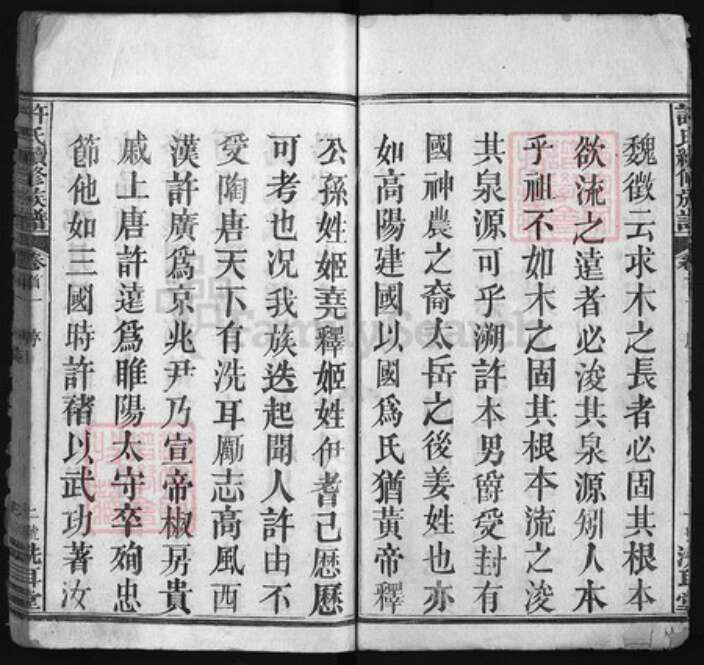 許氏續修族譜
魏徵云求木之長者必固其根本
欲流之遠者必浚其泉源矧人本
乎祖不如木之固其根本流之浚
其泉源可乎溯許本男爵受封有
國神農之裔太岳之後姜姓也亦
如高陽建國以國爲氏猶黃帝釋
公孫姓姬堯釋姬姓伊耆己歷歷
可考也況我族迭起聞人許由不
受陶唐天下有洗耳勵志高風西
漢許廣爲京兆尹乃宣帝椒房貴
戚上唐許遠爲睢陽太守卒殉忠
節他如三國時許褚以武功著汝
許氏續修族譜 卷首 洗耳堂
FamilySearch